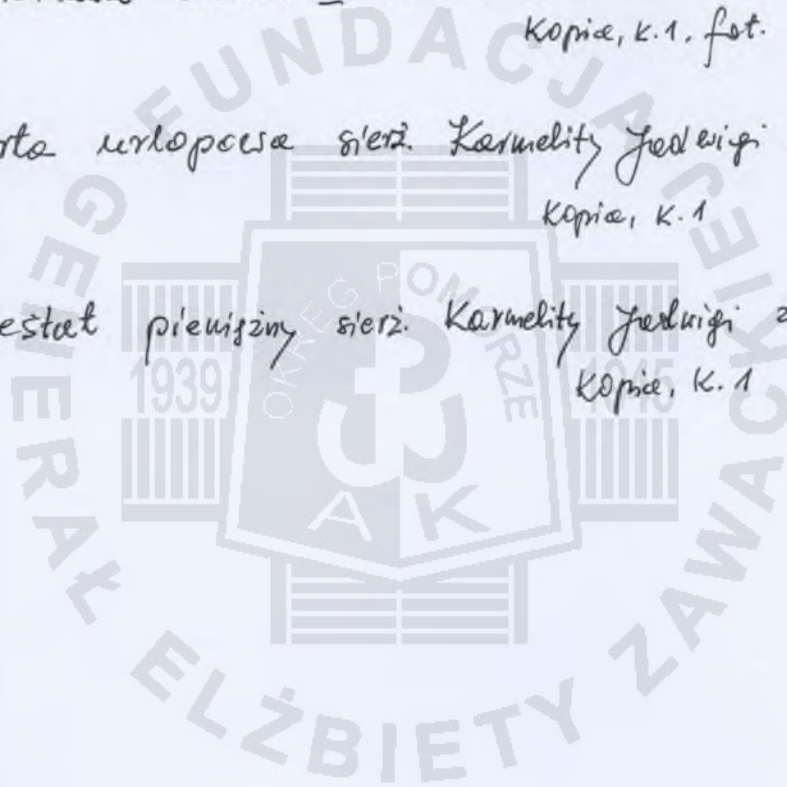 Kopia, K.1. fot.
rta urlopowa sierż. Karmelity Jadwigi
Kopia, K.1
eštat pieniężny sierż. Karmelity Jadwigi z
Kopia, K.1
FUNDACJA
GENERAŁ ELŻBIETY ZAWACKIEJ
OKRĘG POMORZE
1939
1945
AK